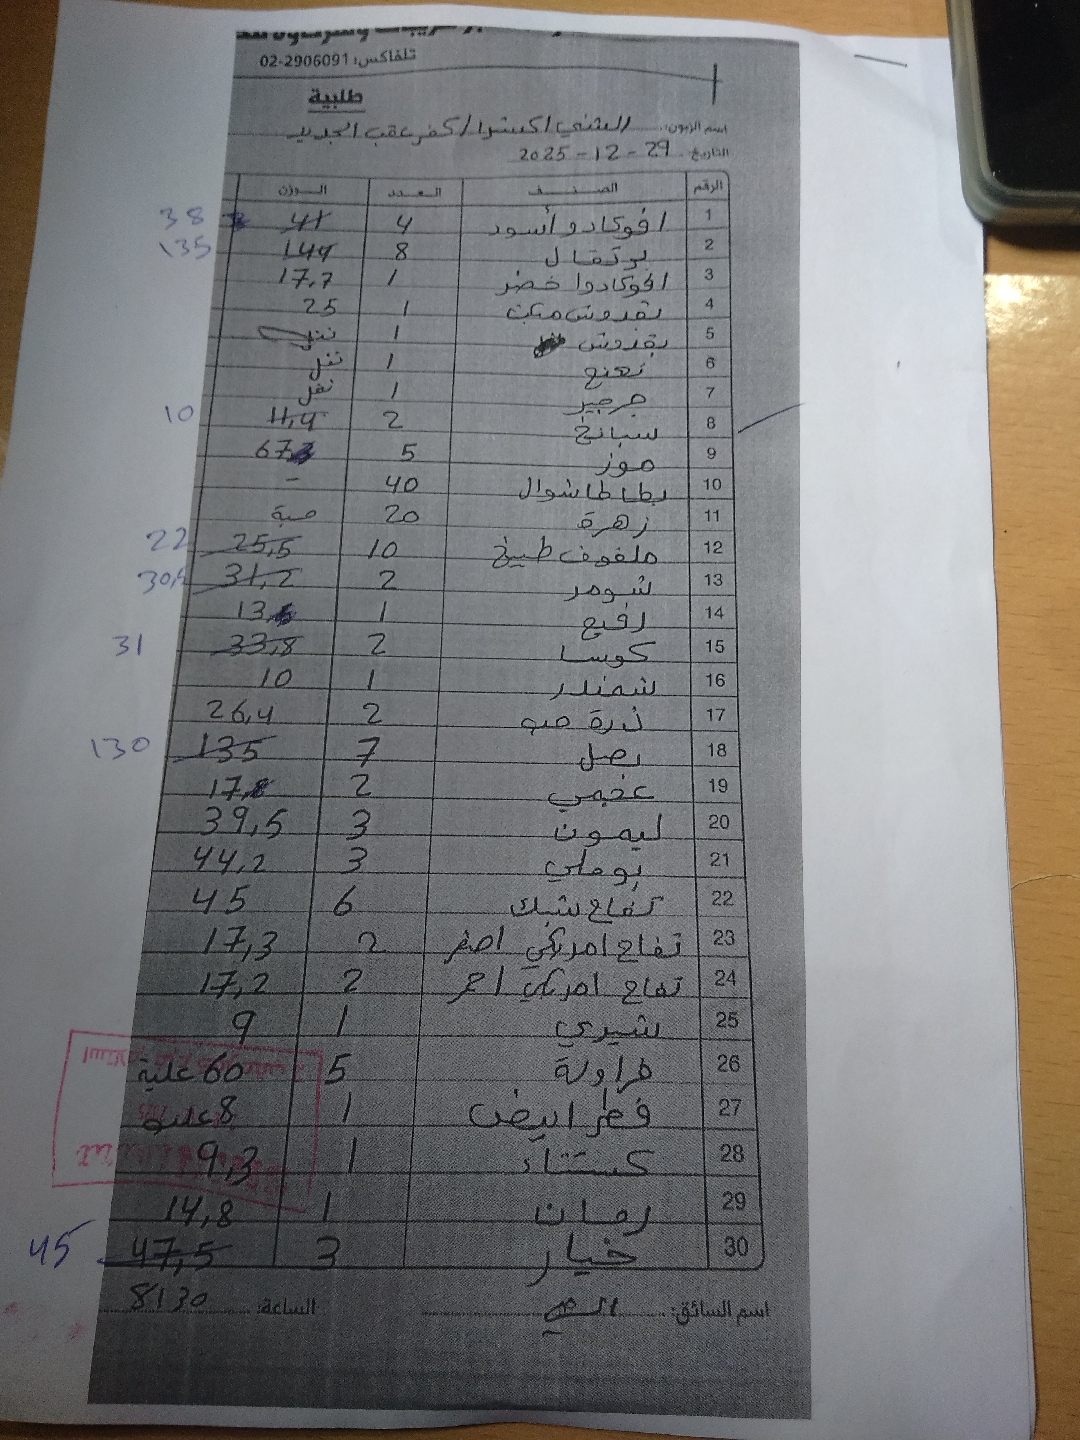 تلفاكس: 02-2906091
طلبية
اسم الزبون: الشني اكسترا / كفر عقب الجديد
التاريخ: 29-12-2025
الرقم الصنف العدد الوزن
1 افوكادو أسود 4 41 38
2 برتقال 8 144 135
3 افوكادوا خضر 1 17,7
4 بقدونس 1 25
5 بقدونس 1
6 نعنع 1
7 جرجير 1
8 سبانخ 2 11,4 10
9 موز 5 67
10 بطاطا شوال 40 -
11 زهرة 20 حبة
12 ملفوف طبيخ 10 25,5 22
13 شومر 2 31,2
14 1 13
15 كوسا 2 33,8 31
16 شمندر 1 10
17 ذرة حب 2 26,4
18 بصل 7 135 130
19 عجمي 2 17
20 ليمون 3 39,5
21 بوملي 3 44,2
22 تفاح شبك 6 45
23 تفاح امريكي اصفر 2 17,3
24 تفاح امريكي احمر 2 17,2
25 شيري 1 9
26 فراولة 5 60 علبة
27 فطر ابيض 1 8 علبة
28 كستناء 1 9,3
29 رمان 1 14,8
30 خيار 3 47,5 45
اسم السائق: الساعة: 8:30